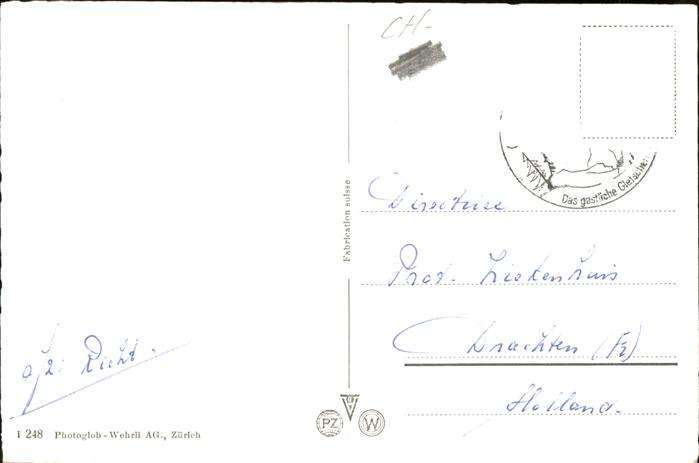 CH-
Das gastliche Gletscher
Fabrication suisse
Directrice
Prot. Ziekenhuis
Drachten (Fr)
Holland.
afz: Richt.
1 248 Photoglob-Wehrli AG., Zürich
PZ
W